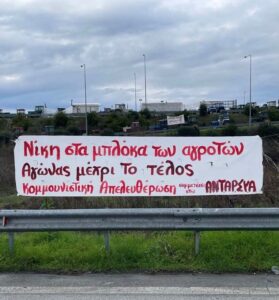 Νίκη στα μπλόκα των αγροτών
Αγώνας μέχρι το τέλος
Κομμουνιστική Απελευθέρωση συμμετέχει στην ΑΝΤΑΡΣΥΑ